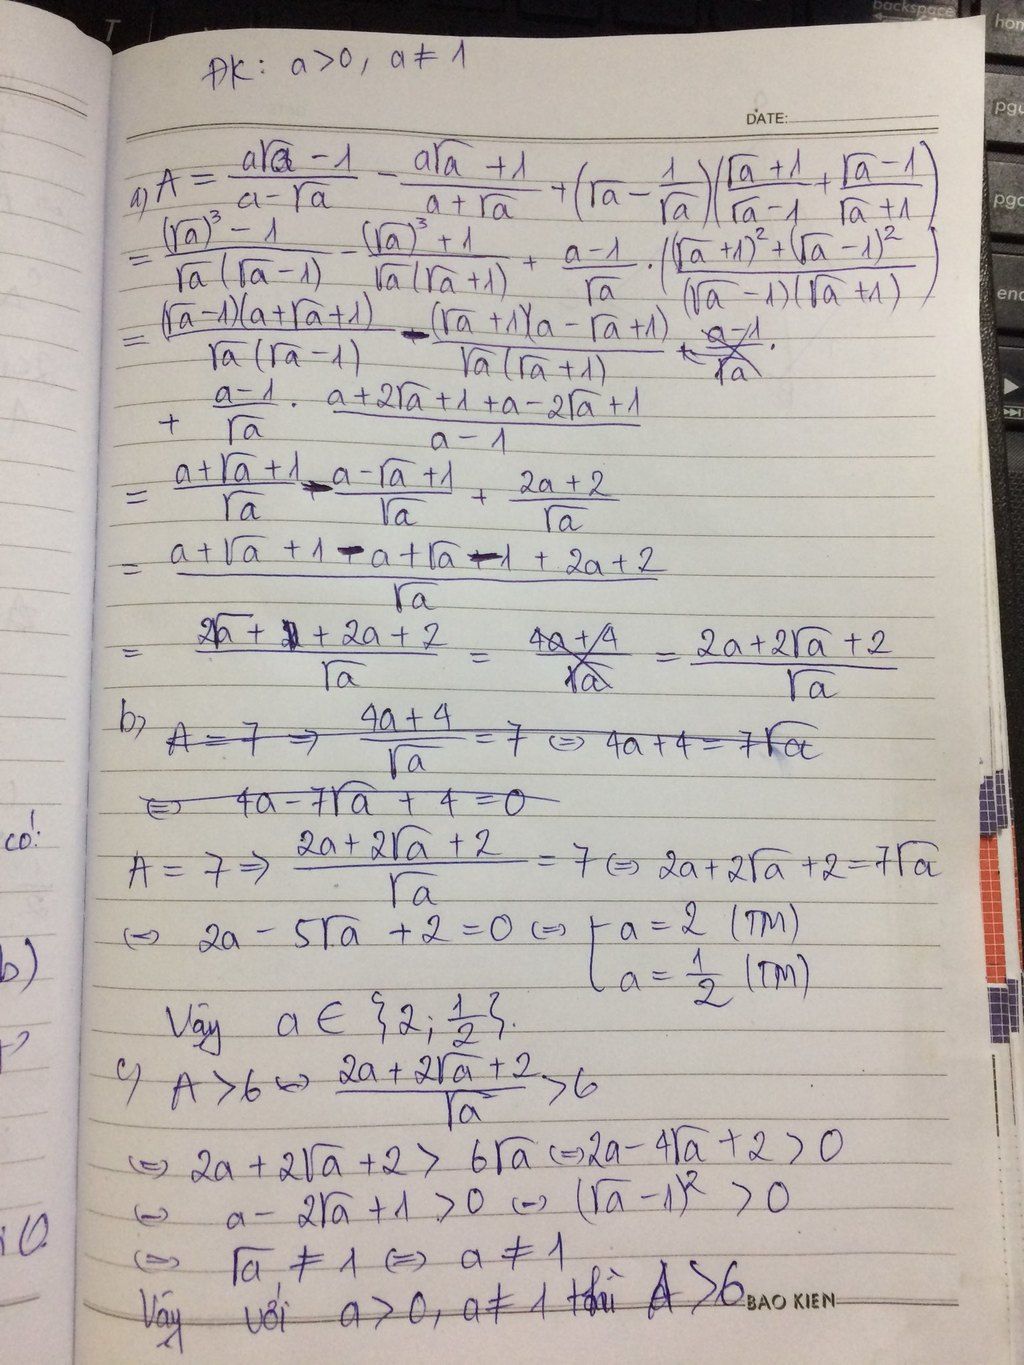 backspace
home
T
pgu
pgd
end
ĐK: a>0, a≠1
DATE:
a) A = (a√a - 1)/(a - √a) - (a√a + 1)/(a + √a) + (√a - 1/√a)((√a + 1)/(√a - 1) + (√a - 1)/(√a + 1))
= ((√a)³ - 1)/(√a(√a - 1)) - ((√a)³ + 1)/(√a(√a + 1)) + (a - 1)/√a . ((√a + 1)² + (√a - 1)²)/((√a - 1)(√a + 1))
= (√a - 1)(a + √a + 1)/(√a(√a - 1)) - (√a + 1)(a - √a + 1)/(√a(√a + 1)) + (a - 1)/√a .
+ (a - 1)/√a . (a + 2√a + 1 + a - 2√a + 1)/(a - 1)
= (a + √a + 1)/√a - (a - √a + 1)/√a + (2a + 2)/√a
= (a + √a + 1 - a + √a - 1 + 2a + 2)/√a
= (2√a + 2a + 2)/√a = (4a + 4)/√a = (2a + 2√a + 2)/√a
b) A = 7 ⇒ (4a + 4)/√a = 7 ⇔ 4a + 4 = 7√a
⇔ 4a - 7√a + 4 = 0
A = 7 ⇒ (2a + 2√a + 2)/√a = 7 ⇔ 2a + 2√a + 2 = 7√a
⇔ 2a - 5√a + 2 = 0 ⇔ [ a = 2 (TM)
a = 1/2 (TM)
Vậy a ∈ {2; 1/2}.
c) A > 6 ⇔ (2a + 2√a + 2)/√a > 6
⇔ 2a + 2√a + 2 > 6√a ⇔ 2a - 4√a + 2 > 0
⇔ a - 2√a + 1 > 0 ⇔ (√a - 1)² > 0
⇔ √a ≠ 1 ⇔ a ≠ 1
Vậy với a > 0, a ≠ 1 thì A > 6
BAO KIEN
có!
b)